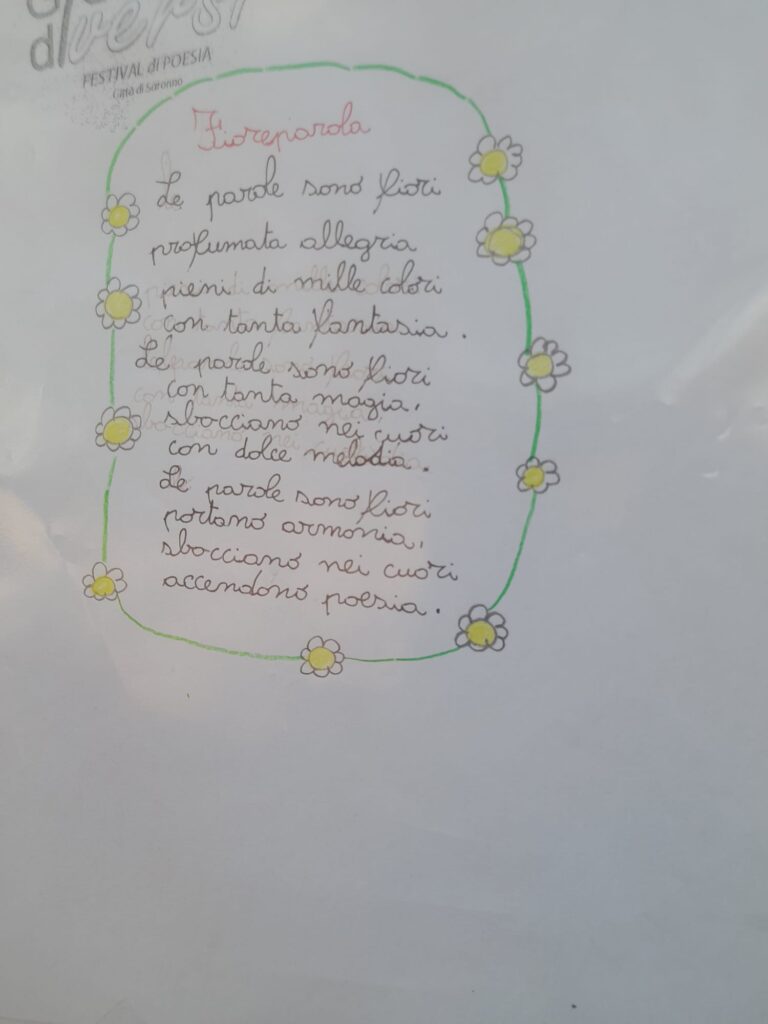 diversi
FESTIVAL di POESIA
Città di Saronno
Fioreparola
Le parole sono fiori
profumata allegria
pieni di mille colori
con tanta fantasia.
Le parole sono fiori
con tanta magia,
sbocciano nei cuori
con dolce melodia.
Le parole sono fiori
portano armonia,
sbocciano nei cuori
accendono poesia.